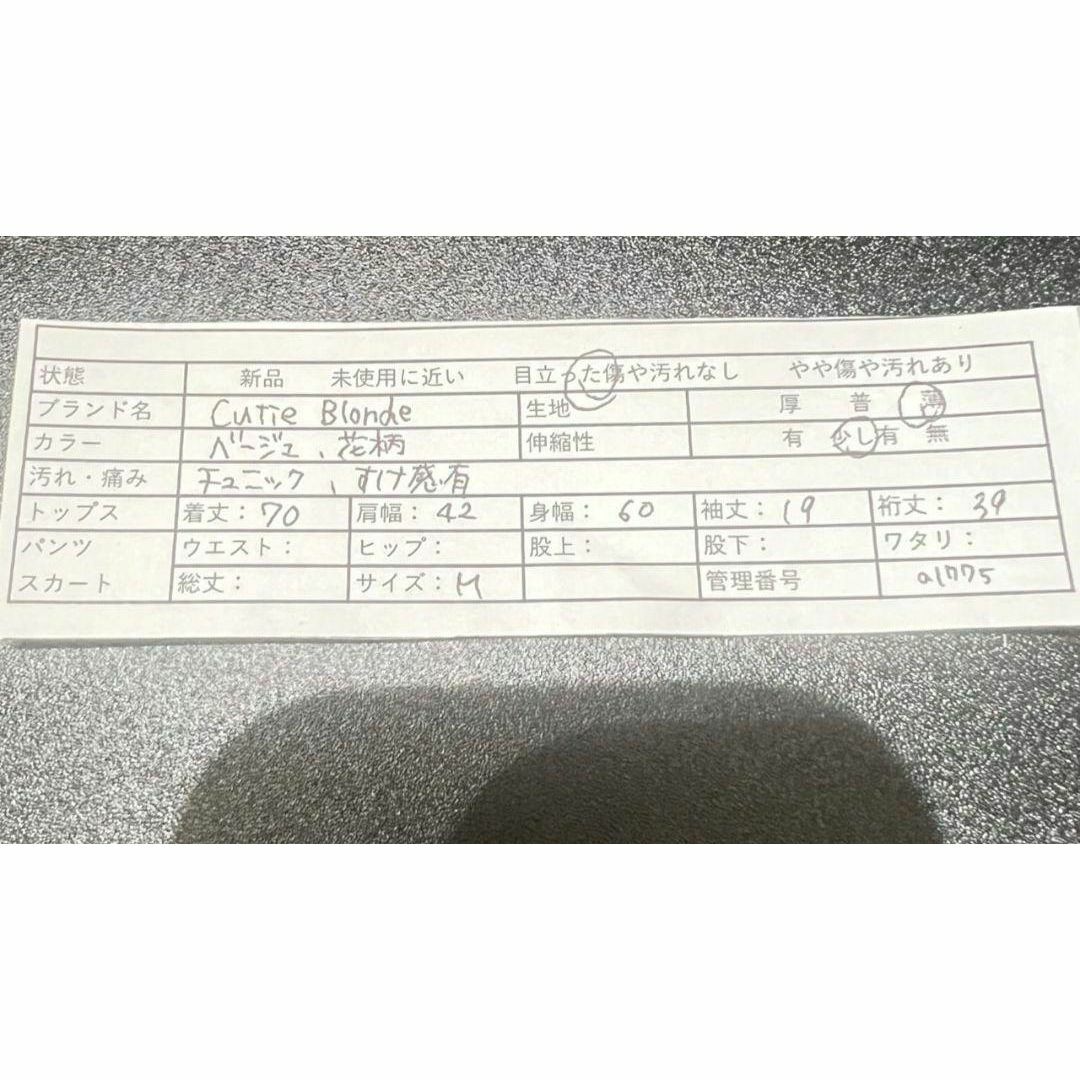 状態 新品 未使用に近い 目立った傷や汚れなし やや傷や汚れあり
ブランド名 Cutie Blonde 生地 厚 普 薄
カラー ベージュ、花柄 伸縮性 有 少し有 無
汚れ・痛み チュニック、すけ感有
トップス 着丈:70 肩幅:42 身幅:60 袖丈:19 裄丈:39
パンツ ウエスト: ヒップ: 股上: 股下: ワタリ:
スカート 総丈: サイズ:M 管理番号 a1775